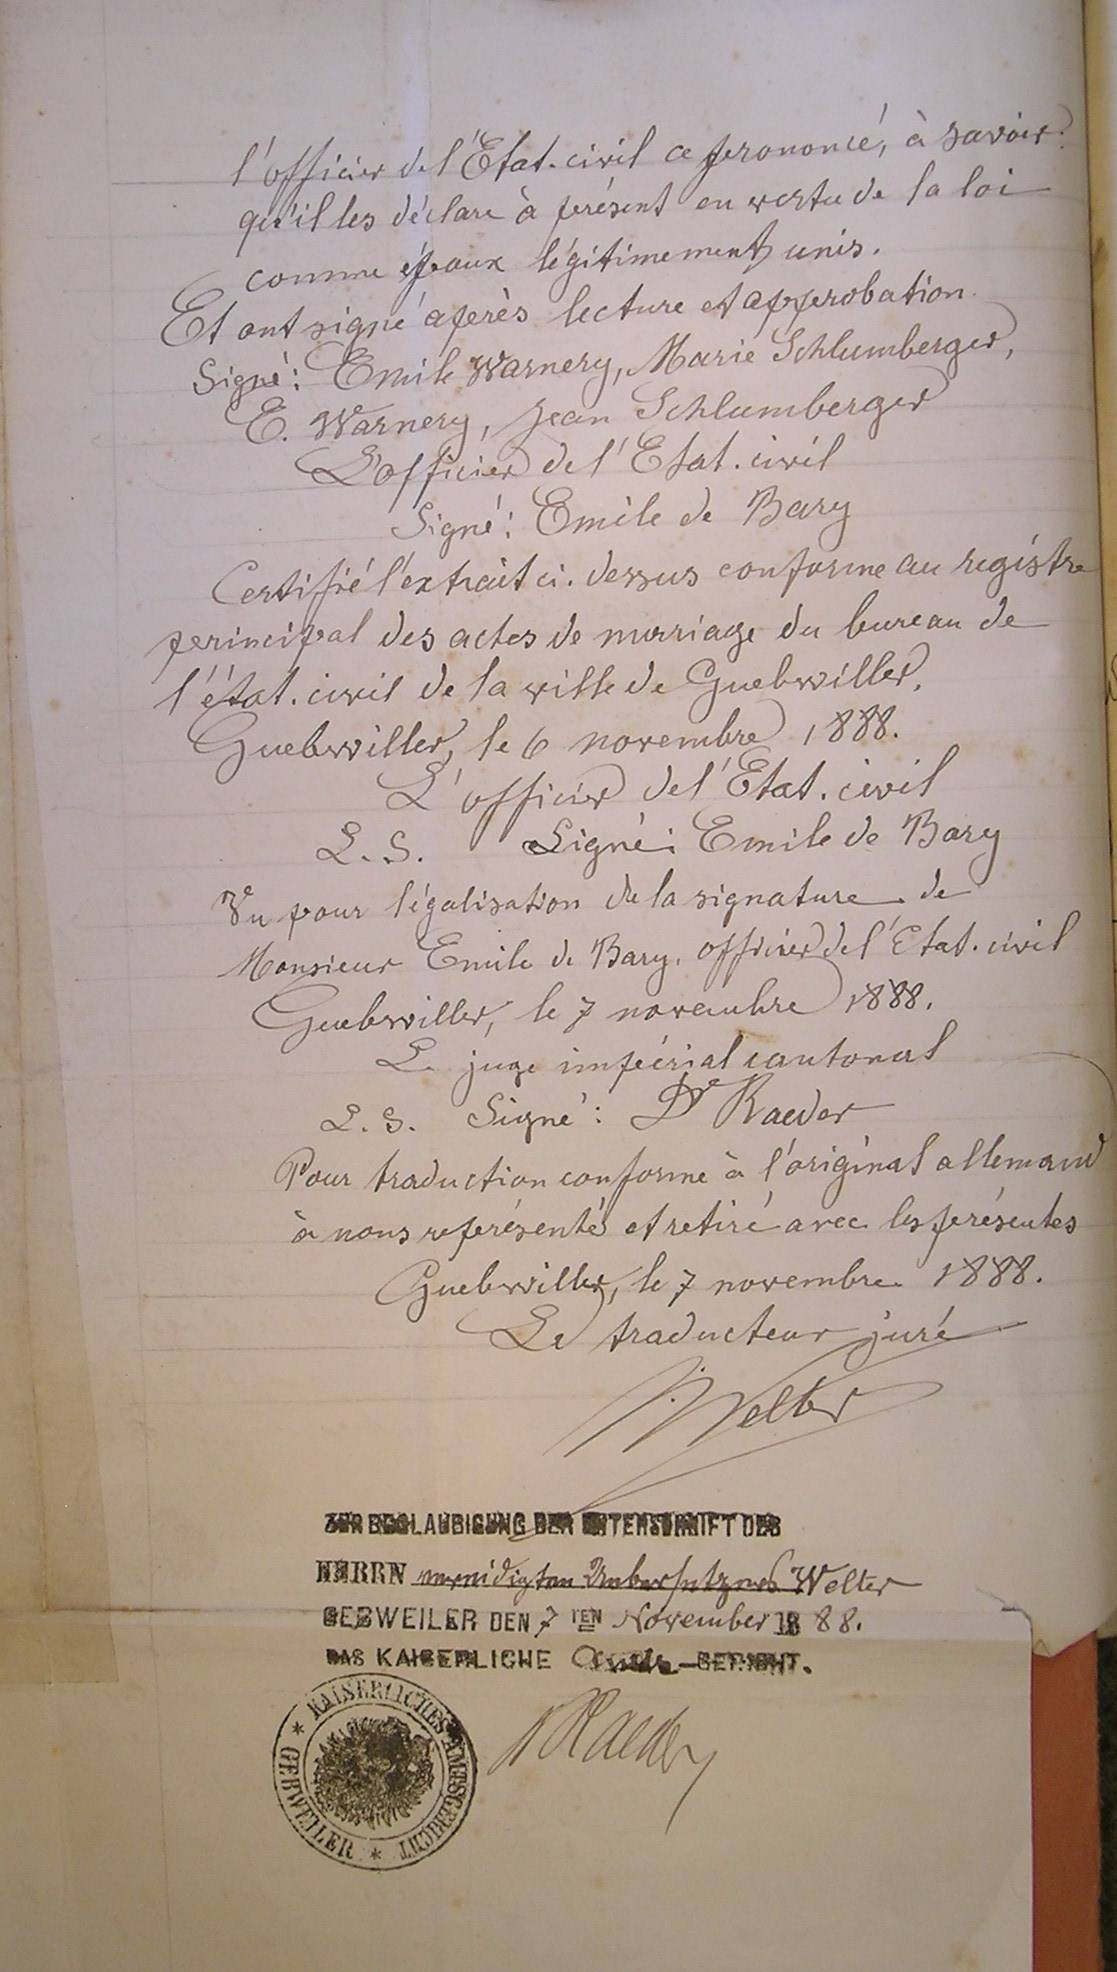 l'officier de l'Etat-civil a prononcé, à savoir:
qu'il les déclare à présent en vertu de la loi
comme époux légitimement unis.
Et ont signé après lecture et approbation.
Signé: Emile Warnery, Marie Schlumberger,
E. Warnery, Jean Schlumberger
L'officier de l'Etat-civil
Signé: Emile de Bary
Certifié l'extrait ci-dessus conforme au registre
principal des actes de mariage du bureau de
l'état-civil de la ville de Guebwiller.
Guebwiller, le 6 novembre 1888.
L'officier de l'Etat-civil
L. S. Signé: Emile de Bary
Vu pour légalisation de la signature de
Monsieur Emile de Bary, officier de l'Etat-civil
Guebwiller, le 7 novembre 1888.
Le juge impérial cantonal
L. S. Signé: Dr Raeder
Pour traduction conforme à l'original allemand
à nous représenté et retiré avec les présentes
Guebwiller, le 7 novembre 1888.
Le traducteur juré
Welter
ZUR BEGLAUBIGUNG DER UNTERSCHRIFT DES
HERRN vereidigten Uebersetzers Welter
GEBWEILER DEN 7 TEN November 18 88.
DAS KAISERLICHE Amts-GERICHT.
KAISERLICHES AMTSGERICHT * GEBWEILER *
Raeder